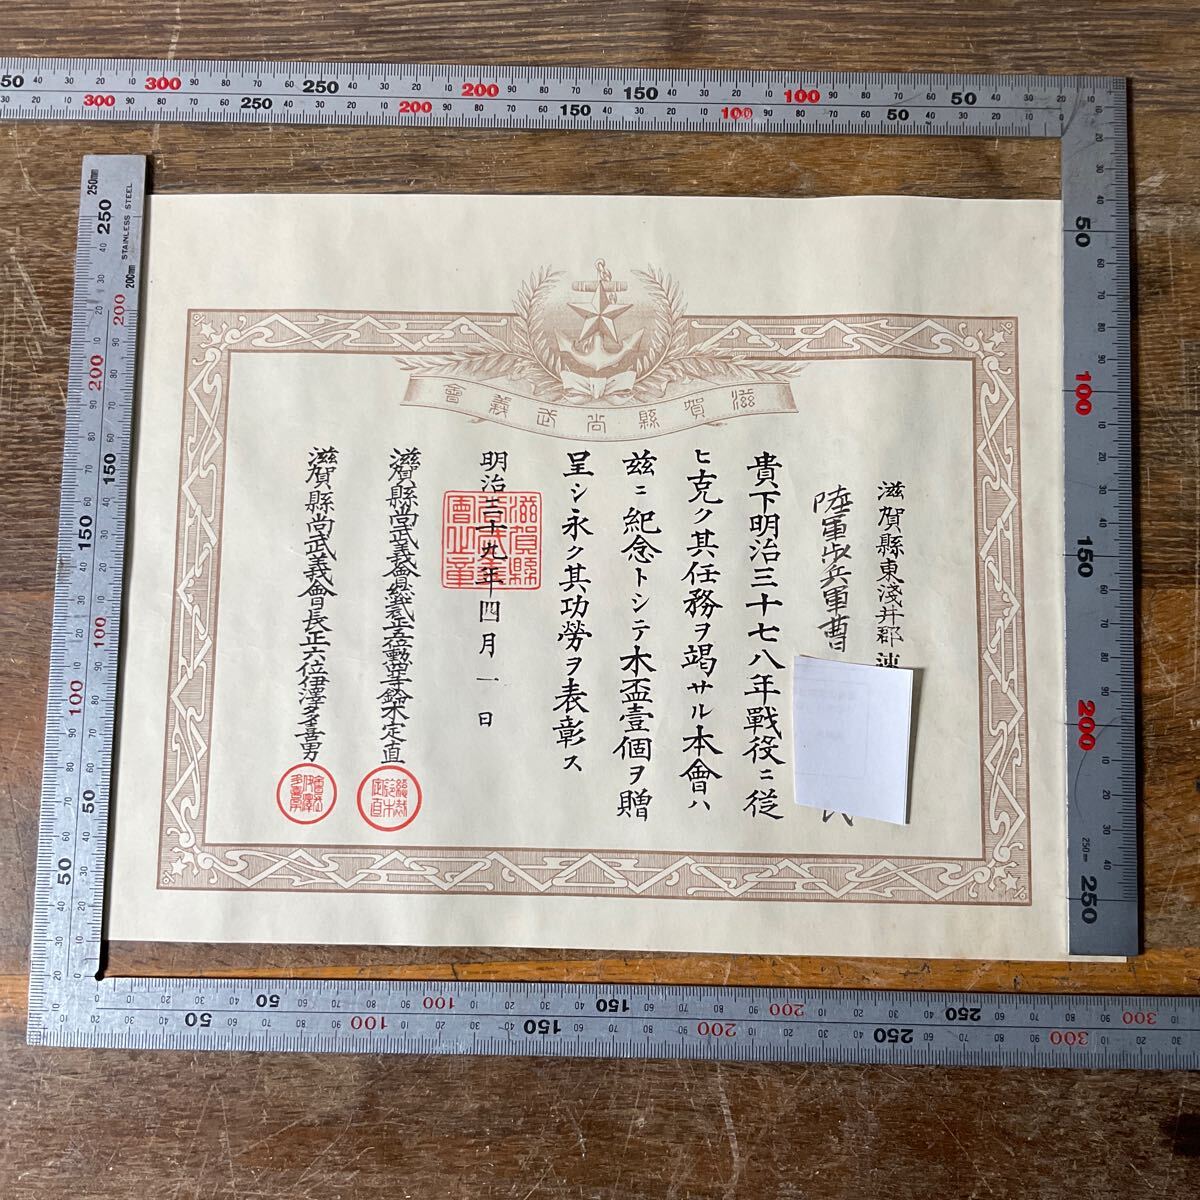 滋賀縣尚武義會
滋賀縣東淺井郡速
陸軍歩兵軍曹
貴下明治三十七八年戰役ニ從
ヒ克ク其任務ヲ竭サル本會ハ
玆ニ紀念トシテ木盃壹個ヲ贈
呈シ永ク其功勞ヲ表彰ス
明治三十九年四月一日
滋賀縣尚武義會總裁正五位勳四等鈴木定直
滋賀縣尚武義會會長正六位伊澤多喜男
STAINLESS STEEL